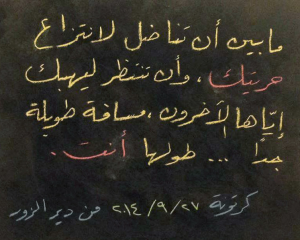 ما بين أن تناضل لانتزاع
حريتك، وأن تنتظر ليهبك
إيّاها الآخرون، مسافة طويلة
جداً ... طولها أنت.
كرتونة ٢٧/٩/٢٠١٤ من دير الزور